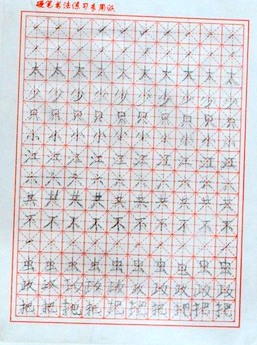 硬笔书法练习专用纸
太太太太太太太太太太
少少少少少少少少少少
只只只只只只只只只只
小小小小小小小小小小
江江江江江江江江江江
六六六六六六六六六六
共共共共共共共共共共
不不不不不不不不不不
虫虫虫虫虫虫虫虫虫虫
玫玫玫玫玫玫玫玫玫玫
把把把把把把把把把把